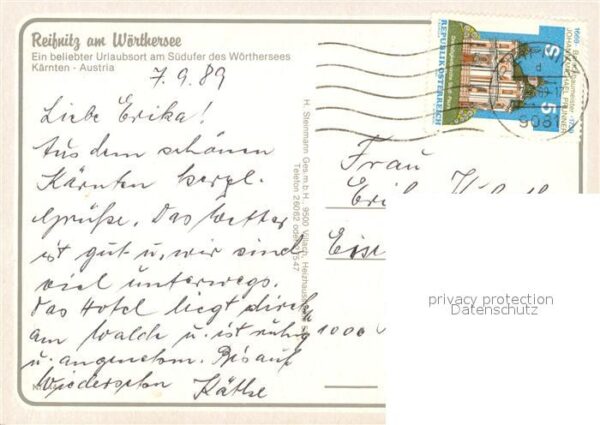 Reifnitz am Wörthersee
Ein beliebter Urlaubsort am Südufer des Wörthersees
Kärnten - Austria
7.9.89
Liebe Erika!
Aus dem schönen
Kärnten herzl.
Grüße. Das Wetter
ist gut u, wir sind
viel unterwegs.
Das Hotel liegt direkt
am Walde u. ist ruhig
u. angenehm. Bis auf
Wiedersehn Käthe
H. Steinmann Ges.m.b.H., 9500 Villach, Heizhausstraße
Telefon 26082
REPUBLIK ÖSTERREICH
S 5
1669 Barockbaumeister 1729
JOHANN MICHAEL PRUNNER
9081
Frau
1000
privacy protection
Datenschutz